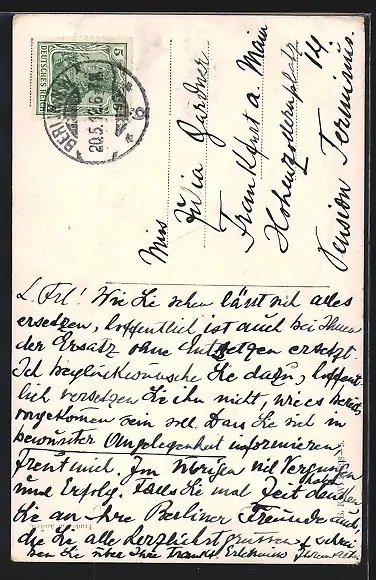 DEUTSCHES REICH
5
BERLIN
20.5.12.6
9
Miss
Julia Gardner
Frankfurt a. Main
Hohenzollernplatz
14
Pension Terminus.
L. Frl! Wie Sie sehen lässt sich alles
ersetzen, hoffentlich ist auch bei Ihnen
der Ersatz ohne Entsetzen ersetzt.
Ich beglückwünsche Sie dazu, hoffent-
lich versetzen Sie ihn nicht, wie es bereits
vorgekommen sein soll. Dass Sie sich in
bewusster Angelegenheit informieren,
freut mich. Im übrigen viel Vergnügen
und Erfolg. Falls Sie mal Zeit haben denken
Sie an Ihre Berliner Freunde auch,
die Sie alle herzlichst grüssen &
schrei-
ben Sie über Ihre Erlebnisse